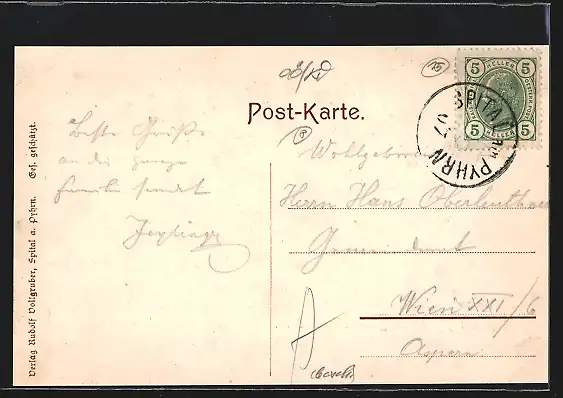 Post-Karte.
15
5 HELLER 5
5 HELLER 5
SPITAL am PYHRN
07
Beste Grüße
an die ganze
Familie sendet
Wohlgeboren
Herrn Hans
Gemeindeamt
Wien XXI/6
Aspern
Verlag Rudolf Vollgruber, Spital a. Pyhrn. Ges. geschützt.